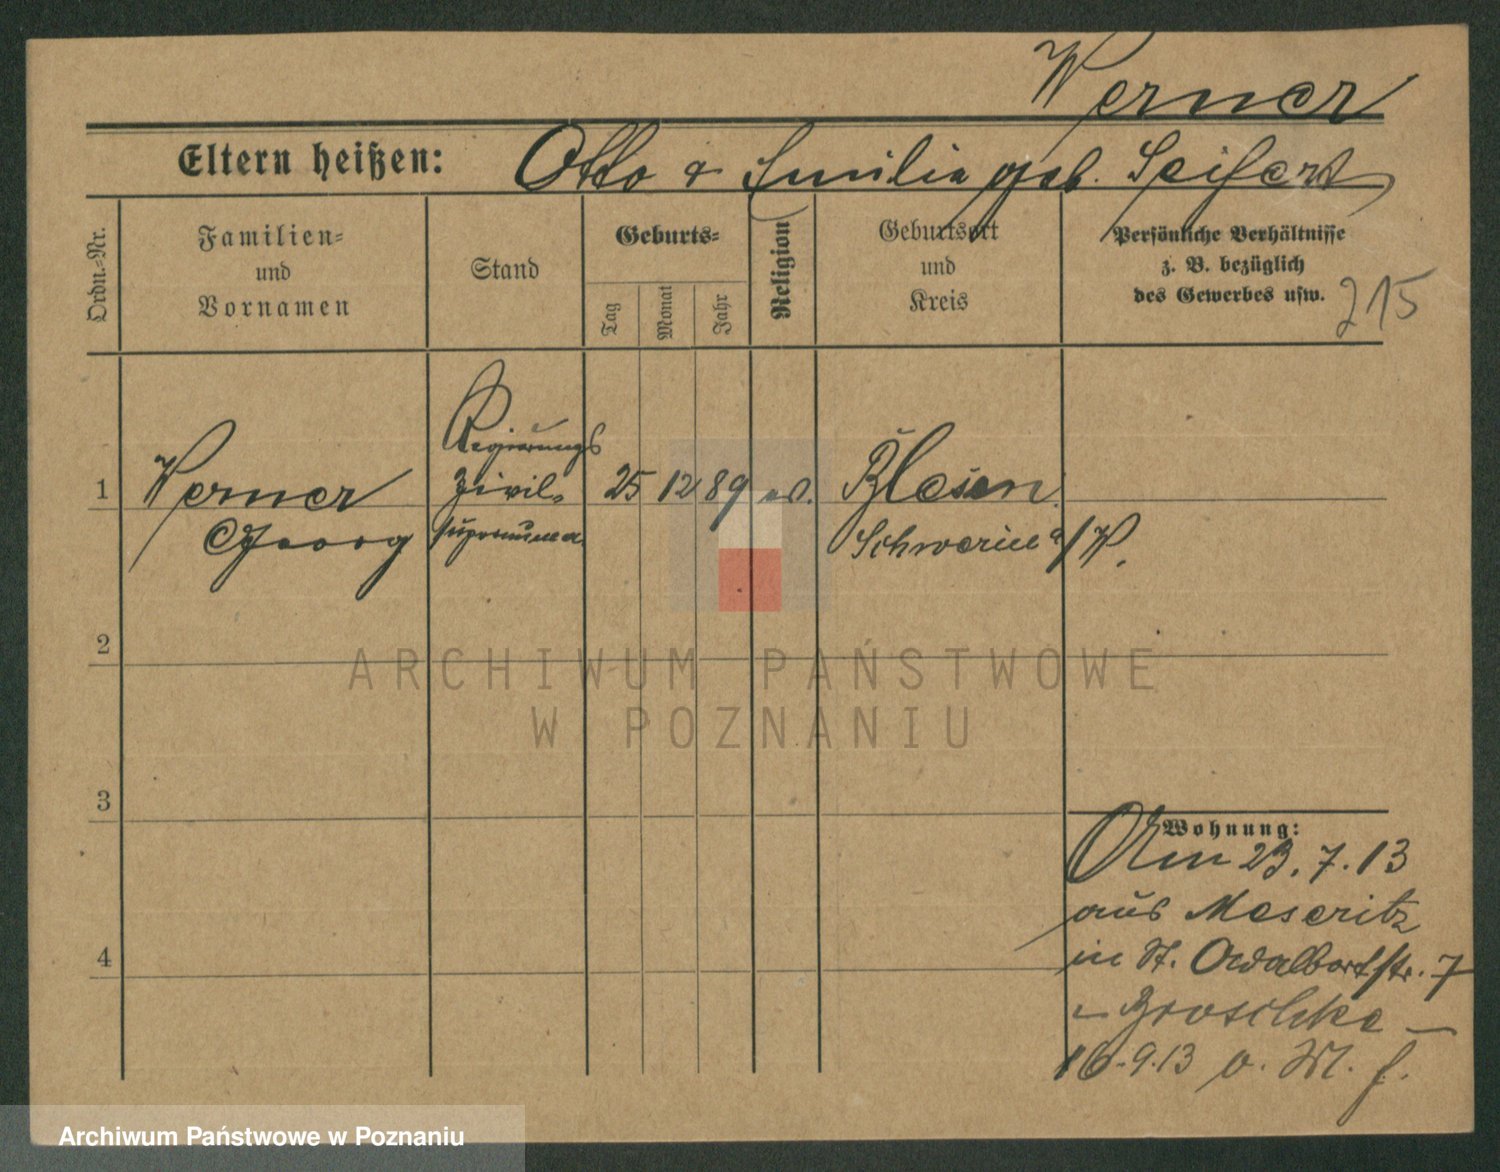 Werner
Eltern heißen: Otto & Emilia geb. Seifert
Ordn.-Nr.
Familien-
und
Vornamen
Stand
Geburts-
Tag
Monat
Jahr
Religion
Geburtsort
und
Kreis
Persönliche Verhältnisse
z. B. bezüglich
des Gewerbes usw.
215
1
Werner
Georg
Regierungs
Zivil-
supernumer.
25 12 89 ev.
Blesen
Schwerin a/W.
2
3
4
Wohnung:
Am 23.7.13
aus Meseritz
in St. Adalbertstr. 7
16.9.13 v. M. f.
ARCHIWUM PAŃSTWOWE
W POZNANIU
Archiwum Państwowe w Poznaniu